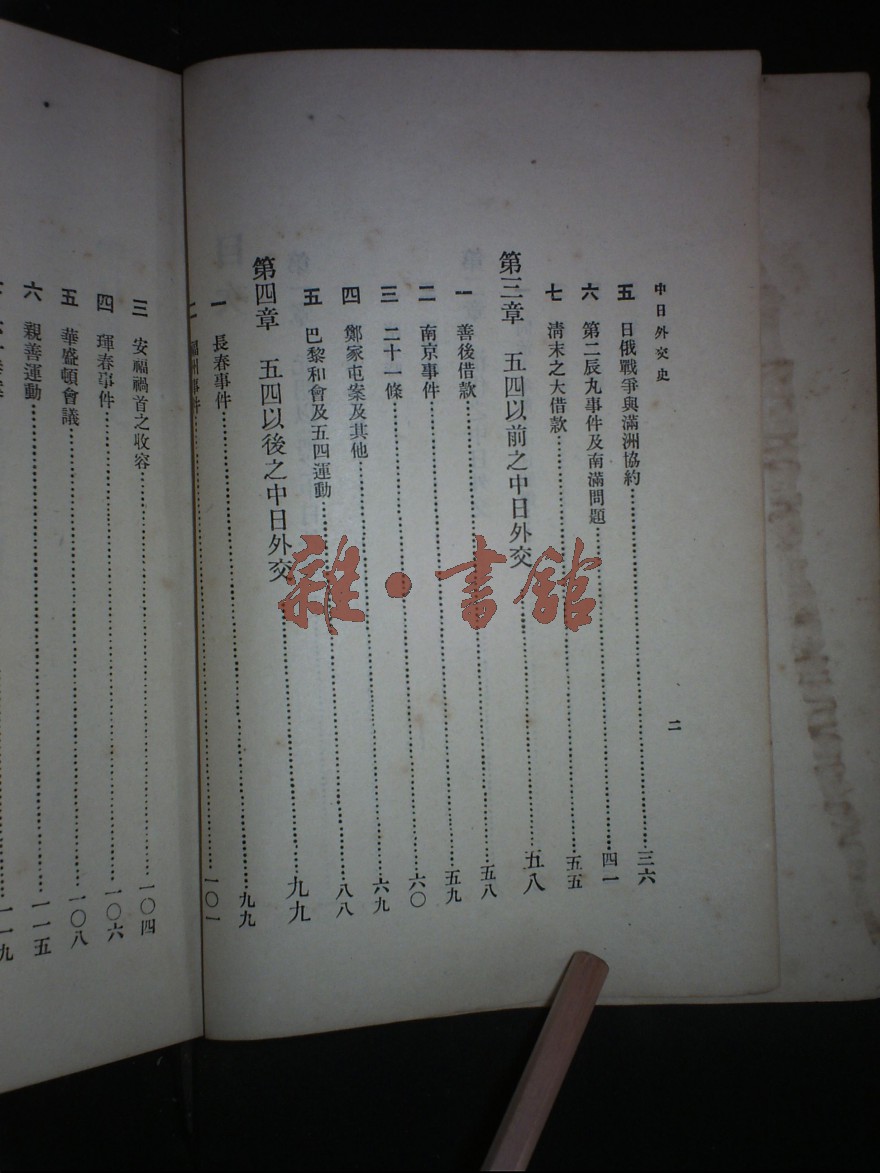 中日外交史
二
五 日俄戰爭與滿洲協約……三六
六 第二辰丸事件及南滿問題……四一
七 清末之大借款……五五
第三章 五四以前之中日外交……五八
一 善後借款……五八
二 南京事件……五九
三 二十一條……六〇
四 鄭家屯案及其他……六九
五 巴黎和會及五四運動……八八
第四章 五四以後之中日外交……九九
一 長春事件……九九
二 福州事件……一〇一
三 安福禍首之收容……一〇四
四 琿春事件……一〇六
五 華盛頓會議……一〇八
六 親善運動……一一五
一一九
雜·書館